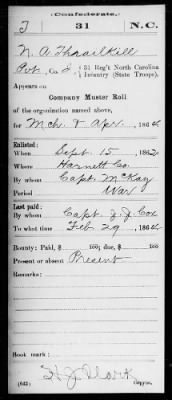 Confederate.
T 31 N.C.
N. A. Thrailkill
Pvt., Co. I, 31 Reg't North Carolina
Infantry (State Troops).
Appears on
Company Muster Roll
of the organization named above,
for Mch & Apr, 1864
Enlisted:
When Sept. 15, 1862
Where Harnett Co.
By whom Capt. McKay
Period War
Last paid:
By whom Capt. J. J. Cox
To what time Feb. 29, 1864
Bounty: Paid, $ 100; due, $ 100
Present or absent Present
Remarks:
Book mark:
(642) Copyist.